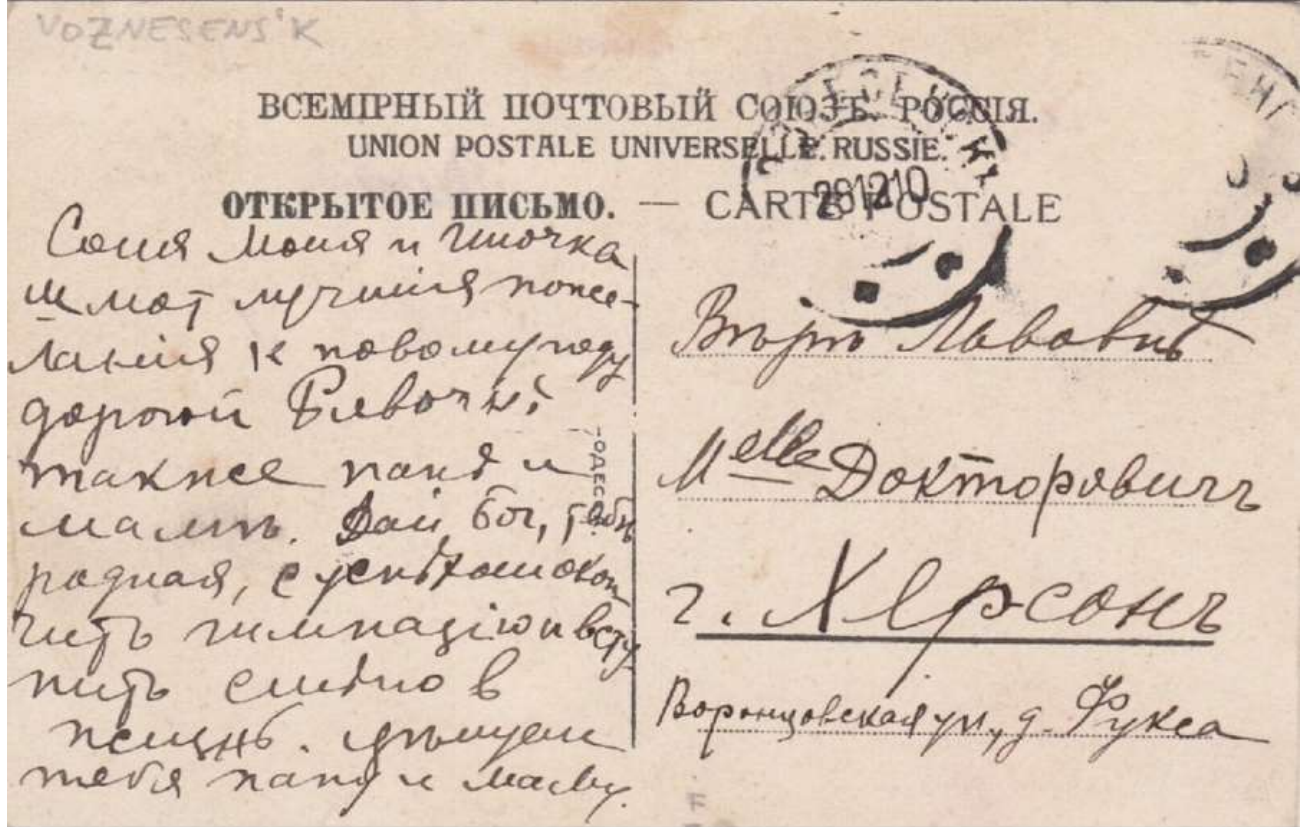 VOZNESENS'K
ВСЕМІРНЫЙ ПОЧТОВЫЙ СОЮЗЪ. РОССІЯ.
UNION POSTALE UNIVERSELLE. RUSSIE.
ОТКРЫТОЕ ПИСЬМО. — CARTE POSTALE
281210
Соня Моня и Ниочка
шлют лучшія поже-
ланія к новому году
дорогой
также папѣ и
мамѣ. Дай Бог, тебѣ
родная, с успѣхом окон
чить гимназію и всту
пить смѣло в
жизнь. Цѣлуем
тебя папу и маму.
ОДЕССА
Вѣрѣ Львовнѣ
Melle Докторовичъ
г. Херсонъ
Воронцовская ул., д. Фукса